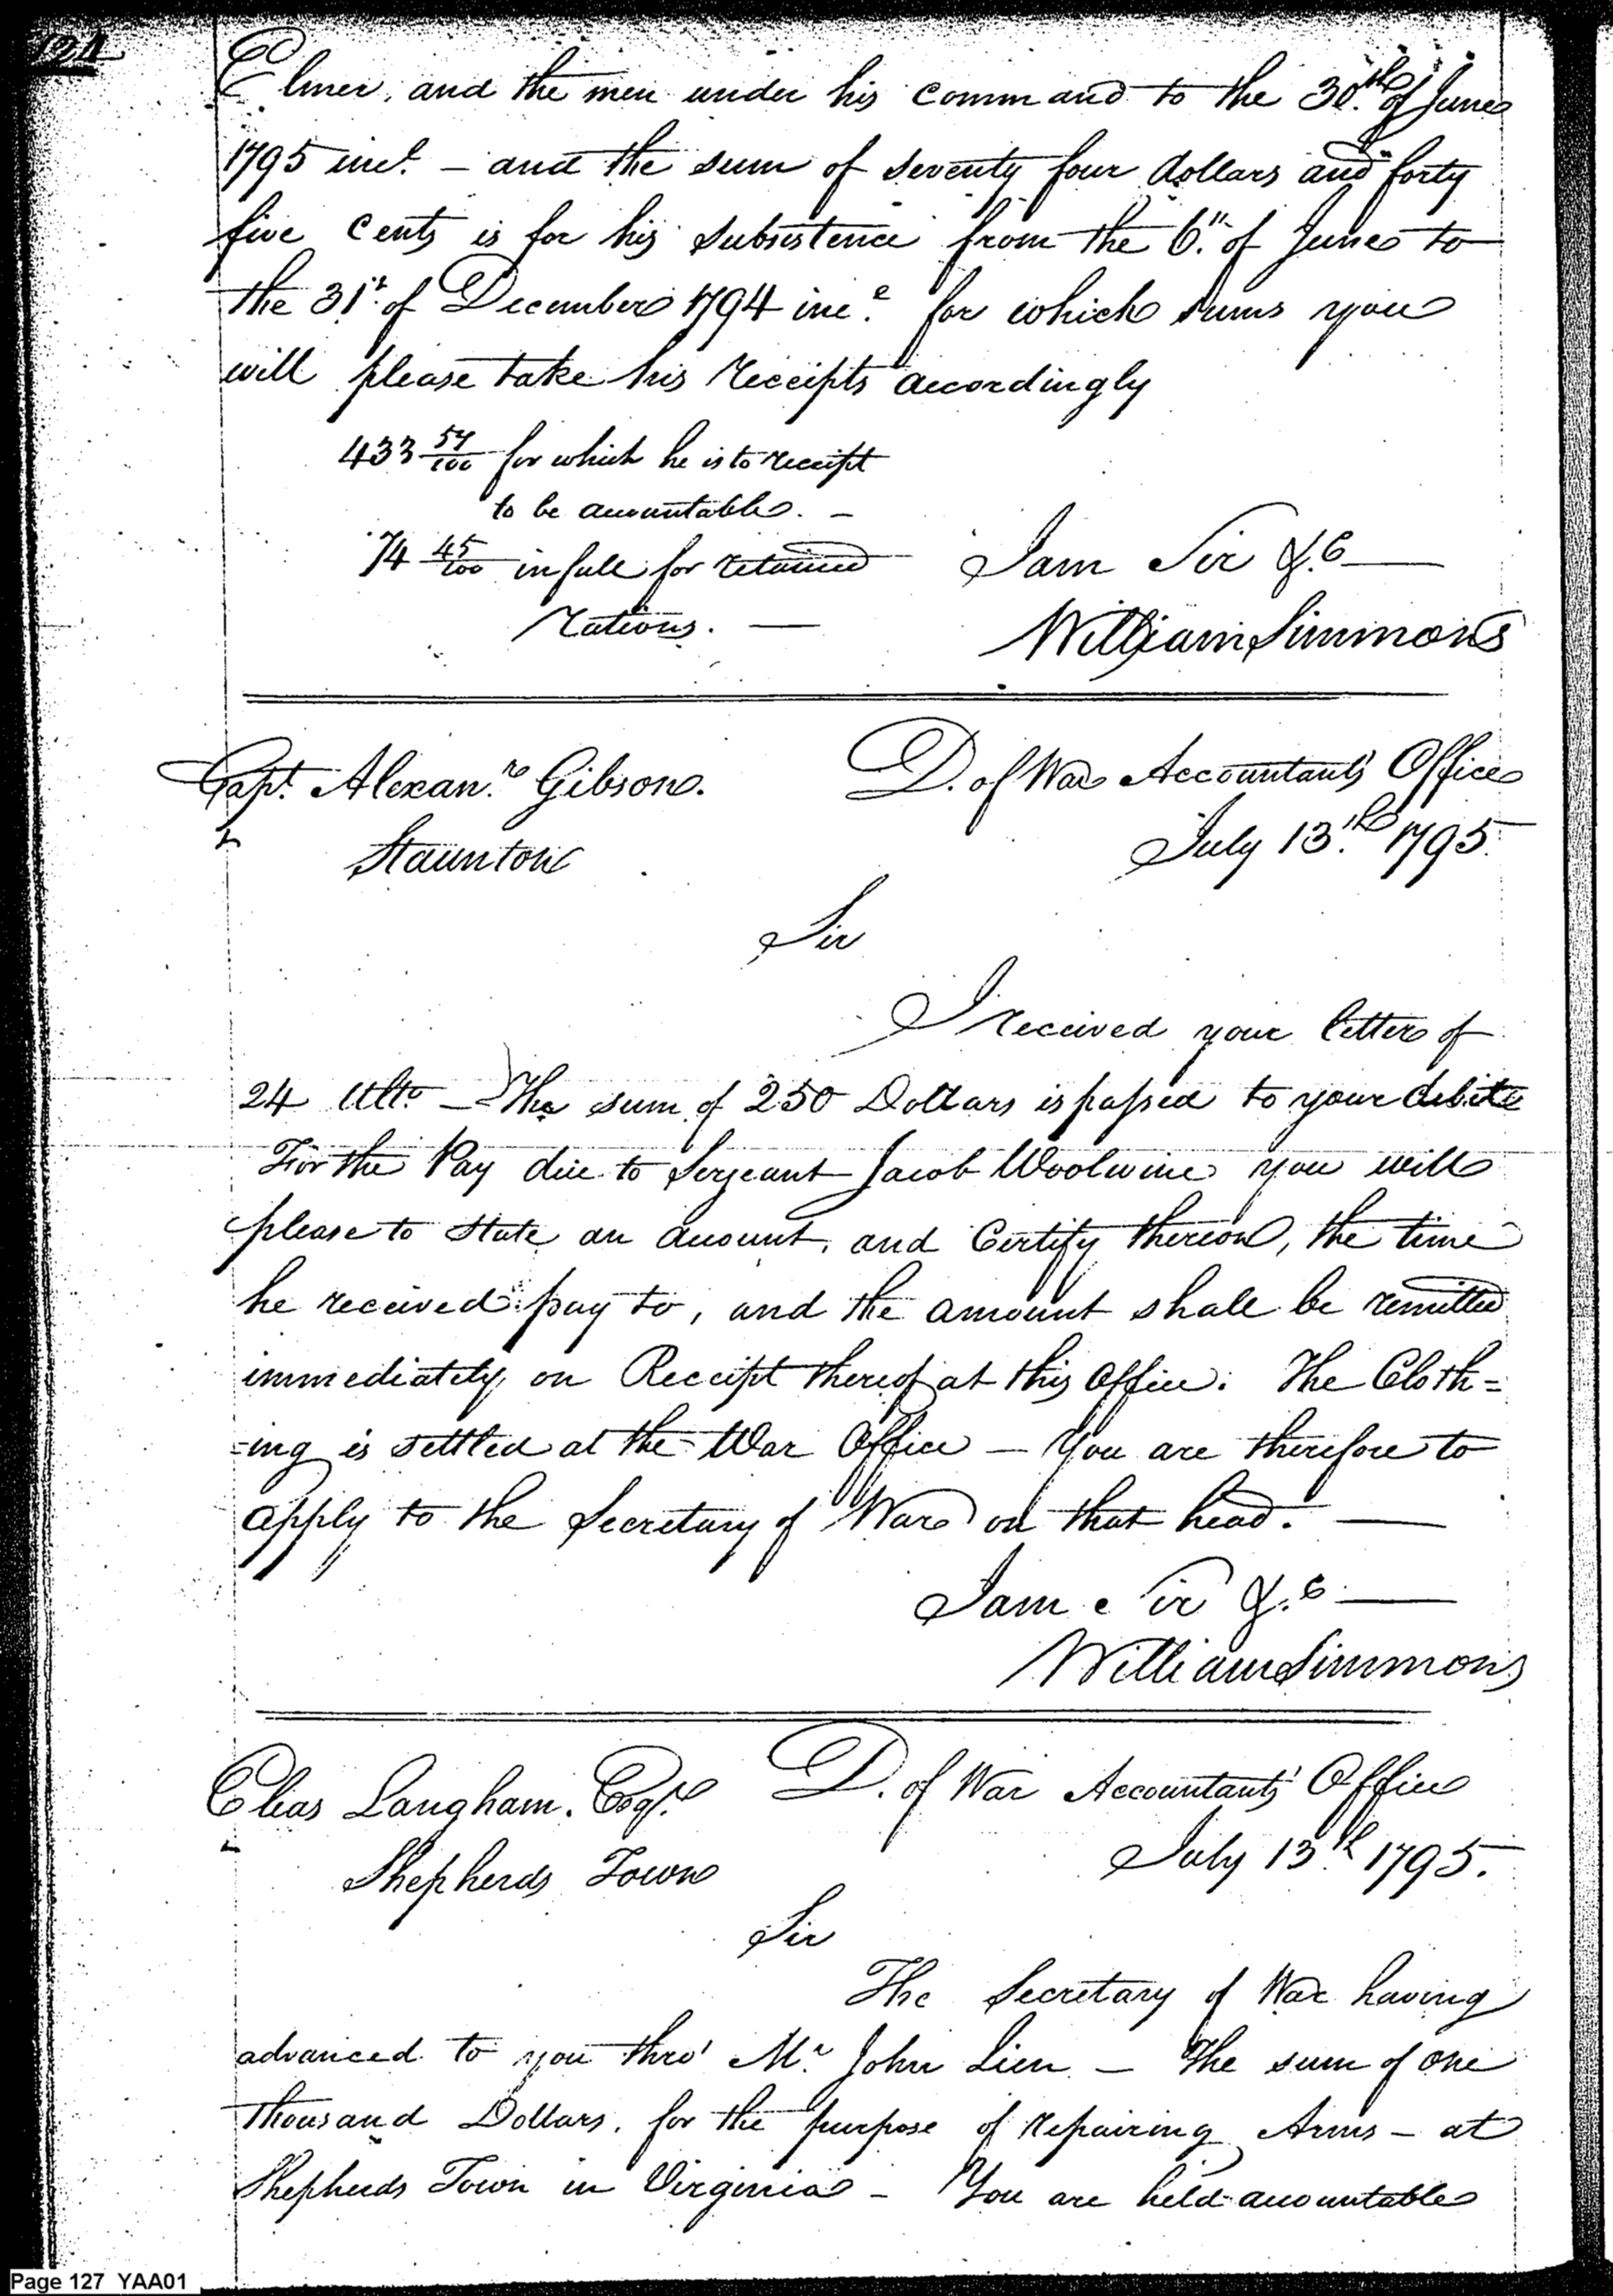 124
Elmer, and the men under his command to the 30.th of June
1795 inc.l – and the sum of seventy four dollars and forty
five Cents is for his subsistence from the 6.th of June to
the 31st. of December 1794 inc.e for which sums you
will please take his receipts accordingly
433 57/100 for which he is to receipt
to be accountable. –
74 45/100 in full for retained
rations. —
I am Sir &.c —
William Simmons
Capt. Alexan.r Gibson.
D. of War Accountants Office
July 13.th 1795.
Staunton
Sir
I received your letter of
24 Ulto – The sum of 250 Dollars is passed to your debit
For the Pay due to Sergeant Jacob Woolwine you will
please to state an account, and Certify thereon, the time
he received pay to, and the amount shall be remitted
immediately on Receipt thereof at this Office. The Cloth=
=ing is settled at the War Office – You are therefore to
apply to the Secretary of War on that head. —
I am Sir &.c —
William Simmons
Elias Langham. Esqr.
D. of War Accountants' Office
July 13.th 1795.
Shepherds Town
Sir
The Secretary of War having
advanced to you thro' Mr John Lien – The sum of one
thousand Dollars, for the purpose of repairing Arms – at
Shepherds Town in Virginia – You are held accountable
Page 127 YAA01